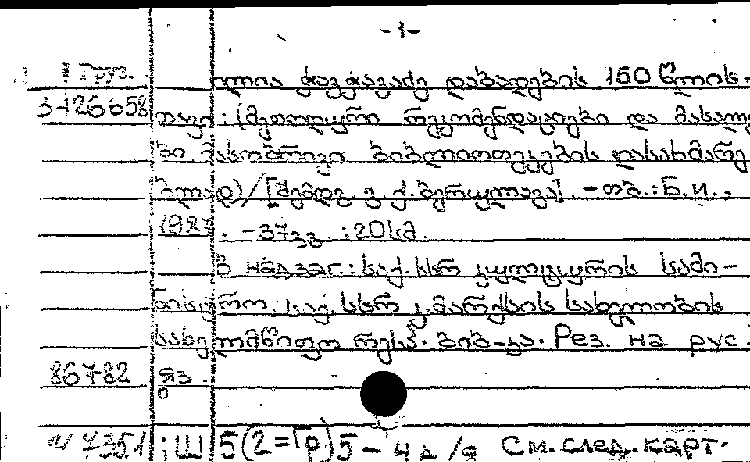 -1-
Груз. ილია ჭავჭავაძე დაბადების 150 წლის-
3426658 თავი : (მეთოდური რეკომენდაციები და მასალე
ბი მასობრივი ბიბლიოთეკების დასახმარე
ბლად) / [შემდგ. ე. ქ. ბერულავა] - თბ. : Б.и.,
1987. - 37 გვ. : 20 სმ.
В надзаг.: საქ. სსრ კულტურის სამი-
ნისტრო, საქ. სსრ კ. მარქსის სახელობის
სახელმწიფო რესპ. ბიბ-კა. Рез. на рус.
86782 яз.
N 7351 ; Ш 5(2=Гр)5 - 4 д /я См.след. карт.